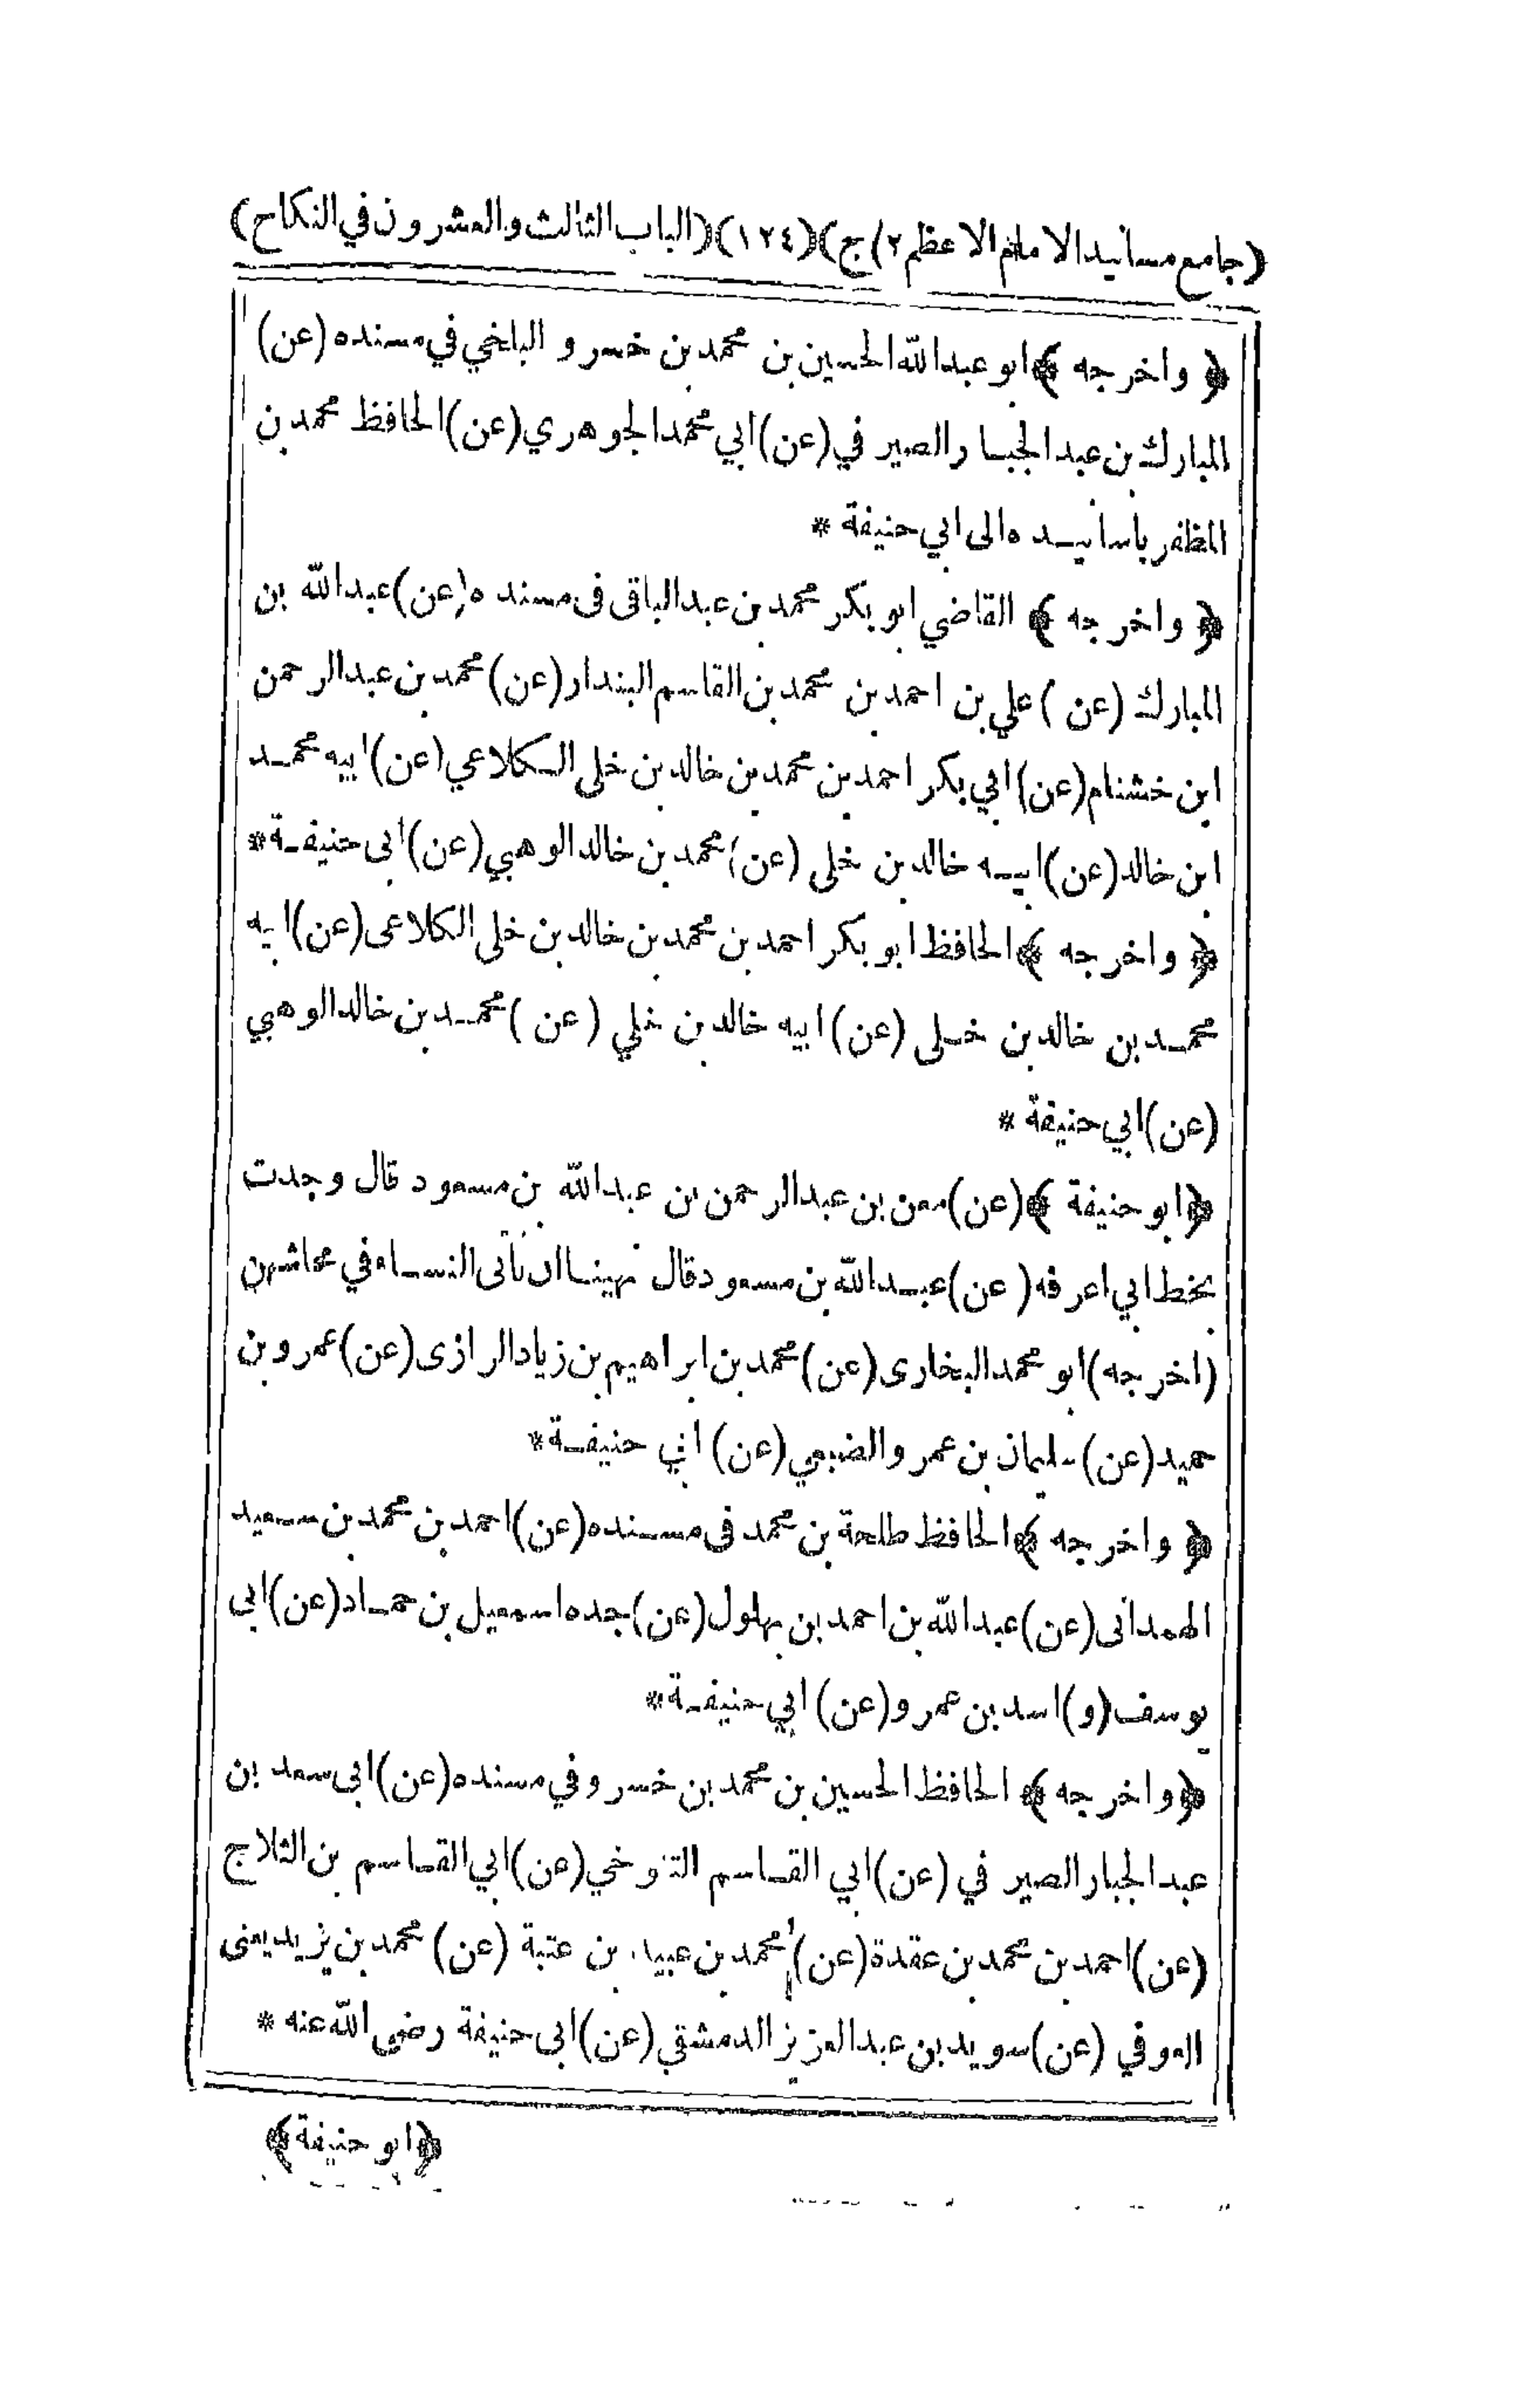 (جامع مسانيد الامام الاعظم ٢) ج)(١٢٤)(الباب الثالث والعشرون في النكاح)
﴿ واخرجه ﴾ ابو عبدالله الحسين بن محمد بن خسرو البلخي في مسنده (عن)
المبارك بن عبد الجبار الصيرفي (عن) ابي محمد الجوهري (عن) الحافظ محمد بن
المظفر باسانيده الى ابي حنيفة *
﴿ واخرجه ﴾ القاضي ابو بكر محمد بن عبدالباقى فى مسنده (عن) عبدالله بن
المبارك (عن) علي بن احمد بن محمد بن القاسم البندار (عن) محمد بن عبدالرحمن
ابن خشنام (عن) ابي بكر احمد بن محمد بن خالد بن خلى الكلاعي (عن) ابيه محمد
ابن خالد (عن) ابيه خالد بن خلى (عن) محمد بن خالد الوهبي (عن) ابى حنيفة *
﴿ واخرجه ﴾ الحافظ ابو بكر احمد بن محمد بن خالد بن خلى الكلاعى (عن) ابيه
محمد بن خالد بن خلى (عن) ابيه خالد بن خلي (عن) محمد بن خالد الوهبي
(عن) ابي حنيفة *
﴿ ابو حنيفة ﴾ (عن) معن بن عبدالرحمن بن عبدالله بن مسعود قال وجدت
بخط ابي اعرفه (عن) عبدالله بن مسعود قال نهينا ان نأتى النساء في محاشهن
(اخرجه) ابو محمد البخارى (عن) محمد بن ابراهيم بن زياد الرازى (عن) عمرو بن
حميد (عن) سليمان بن عمرو الضبعي (عن) ابي حنيفة *
﴿ واخرجه ﴾ الحافظ طلحة بن محمد فى مسنده (عن) احمد بن محمد بن سعيد
الهمدانى (عن) عبدالله بن احمد بن بهلول (عن) جده اسمعيل بن حماد (عن) ابى
يوسف (و) اسد بن عمرو (عن) ابي حنيفة *
﴿ واخرجه ﴾ الحافظ الحسين بن محمد بن خسرو في مسنده (عن) ابى سعد بن
عبدالجبار الصيرفي (عن) ابي القاسم التنوخي (عن) ابي القاسم بن الثلاج
(عن) احمد بن محمد بن عقدة (عن) محمد بن عبيد بن عتبة (عن) محمد بن يزيد يعنى
العوفي (عن) سويد بن عبدالعزيز الدمشقي (عن) ابى حنيفة رضى الله عنه *
﴿ ابو حنيفة ﴾